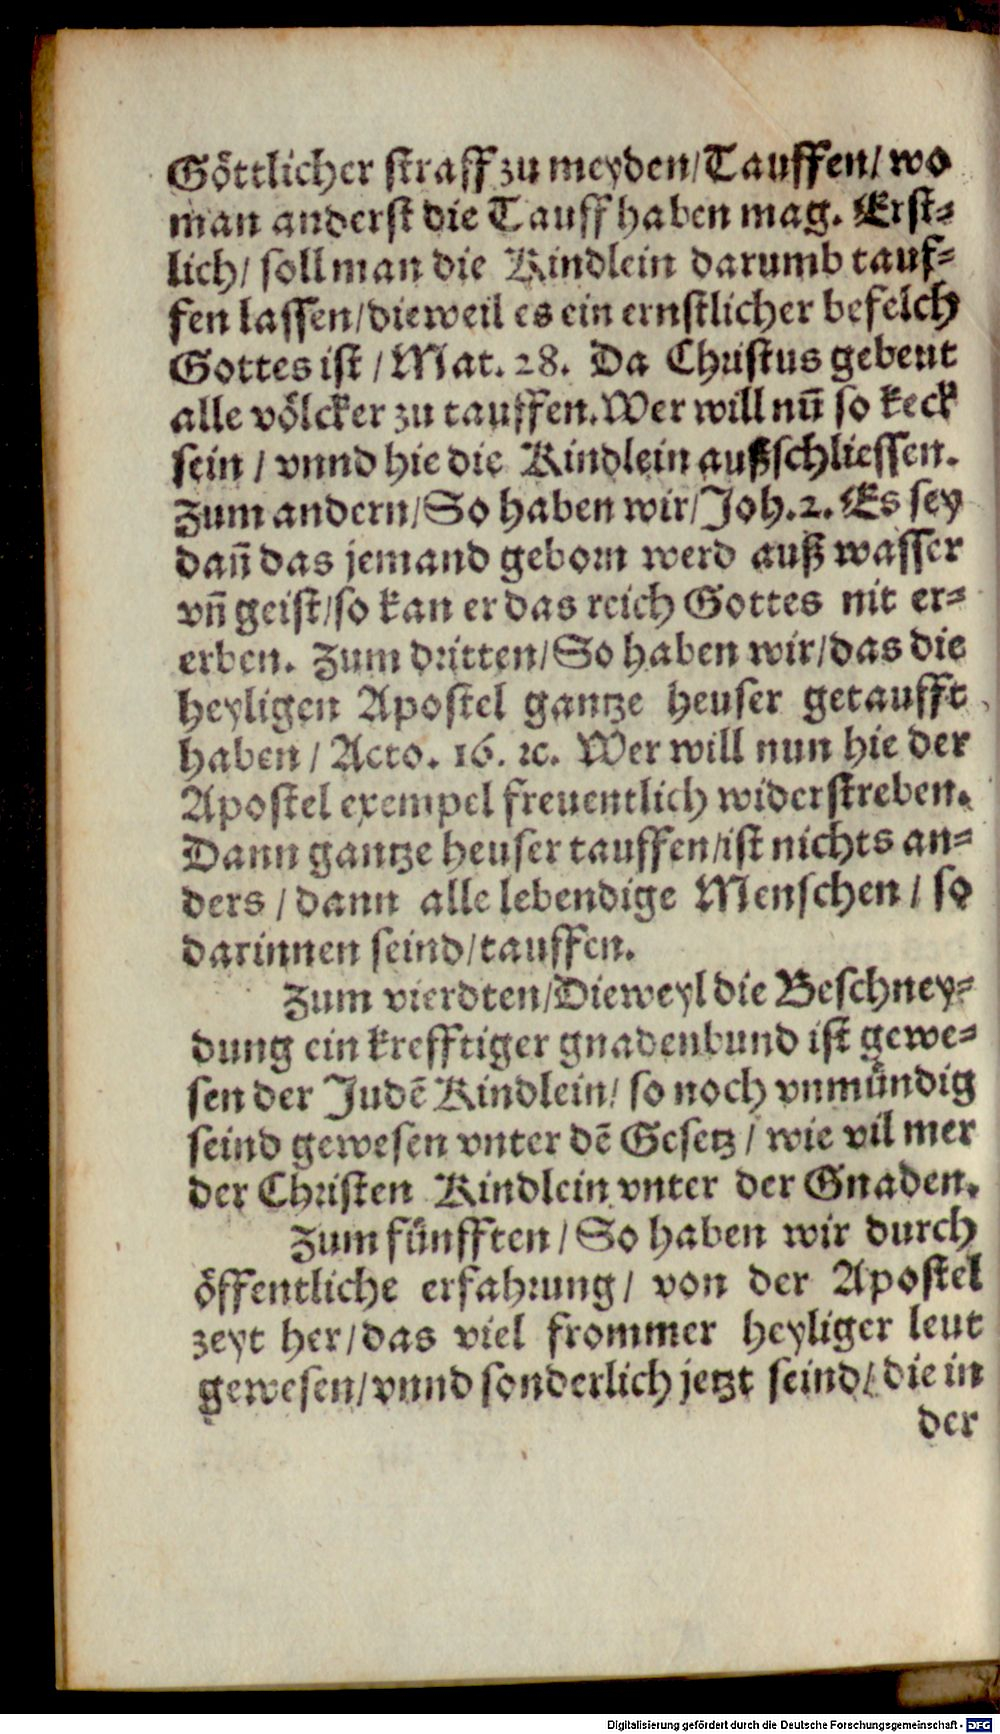 Göttlicher straff zu meyden/Tauffen/ wo
man anderst die Tauff haben mag. Erst-
lich/ soll man die Kindlein darumb tauf-
fen lassen/dieweil es ein ernstlicher befelch
Gottes ist / Mat. 28. Da Christus gebeut
alle völcker zu tauffen. Wer will nun̄ so keck
sein / vnnd hie die Kindlein außschliessen.
Zum andern/So haben wir/Joh. 2. Es sey
dan̄ das jemand geborn werd auß wasser
vn̄ geist/so kan er das reich Gottes nit er-
erben. Zum dritten/So haben wir/das die
heyligen Apostel gantze heuser getaufft
haben / Acto. 16. ꝛc. Wer will nun hie der
Apostel exempel freuentlich widerstreben.
Dann gantze heuser tauffen/ist nichts an-
ders / dann alle lebendige Menschen / so
darinnen seind/tauffen.
Zum vierdten/Dieweyl die Beschney-
dung ein krefftiger gnadenbund ist gewe-
sen der Judē Kindlein/ so noch vnmündig
seind gewesen vnter dē Gesetz / wie vil mer
der Christen Kindlein vnter der Gnaden.
Zum fünfften / So haben wir durch
öffentliche erfahrung/ von der Apostel
zeyt her/das viel frommer heyliger leut
gewesen/vnnd sonderlich jetzt seind/ die in
der
Digitalisierung gefördert durch die Deutsche Forschungsgemeinschaft - DFG